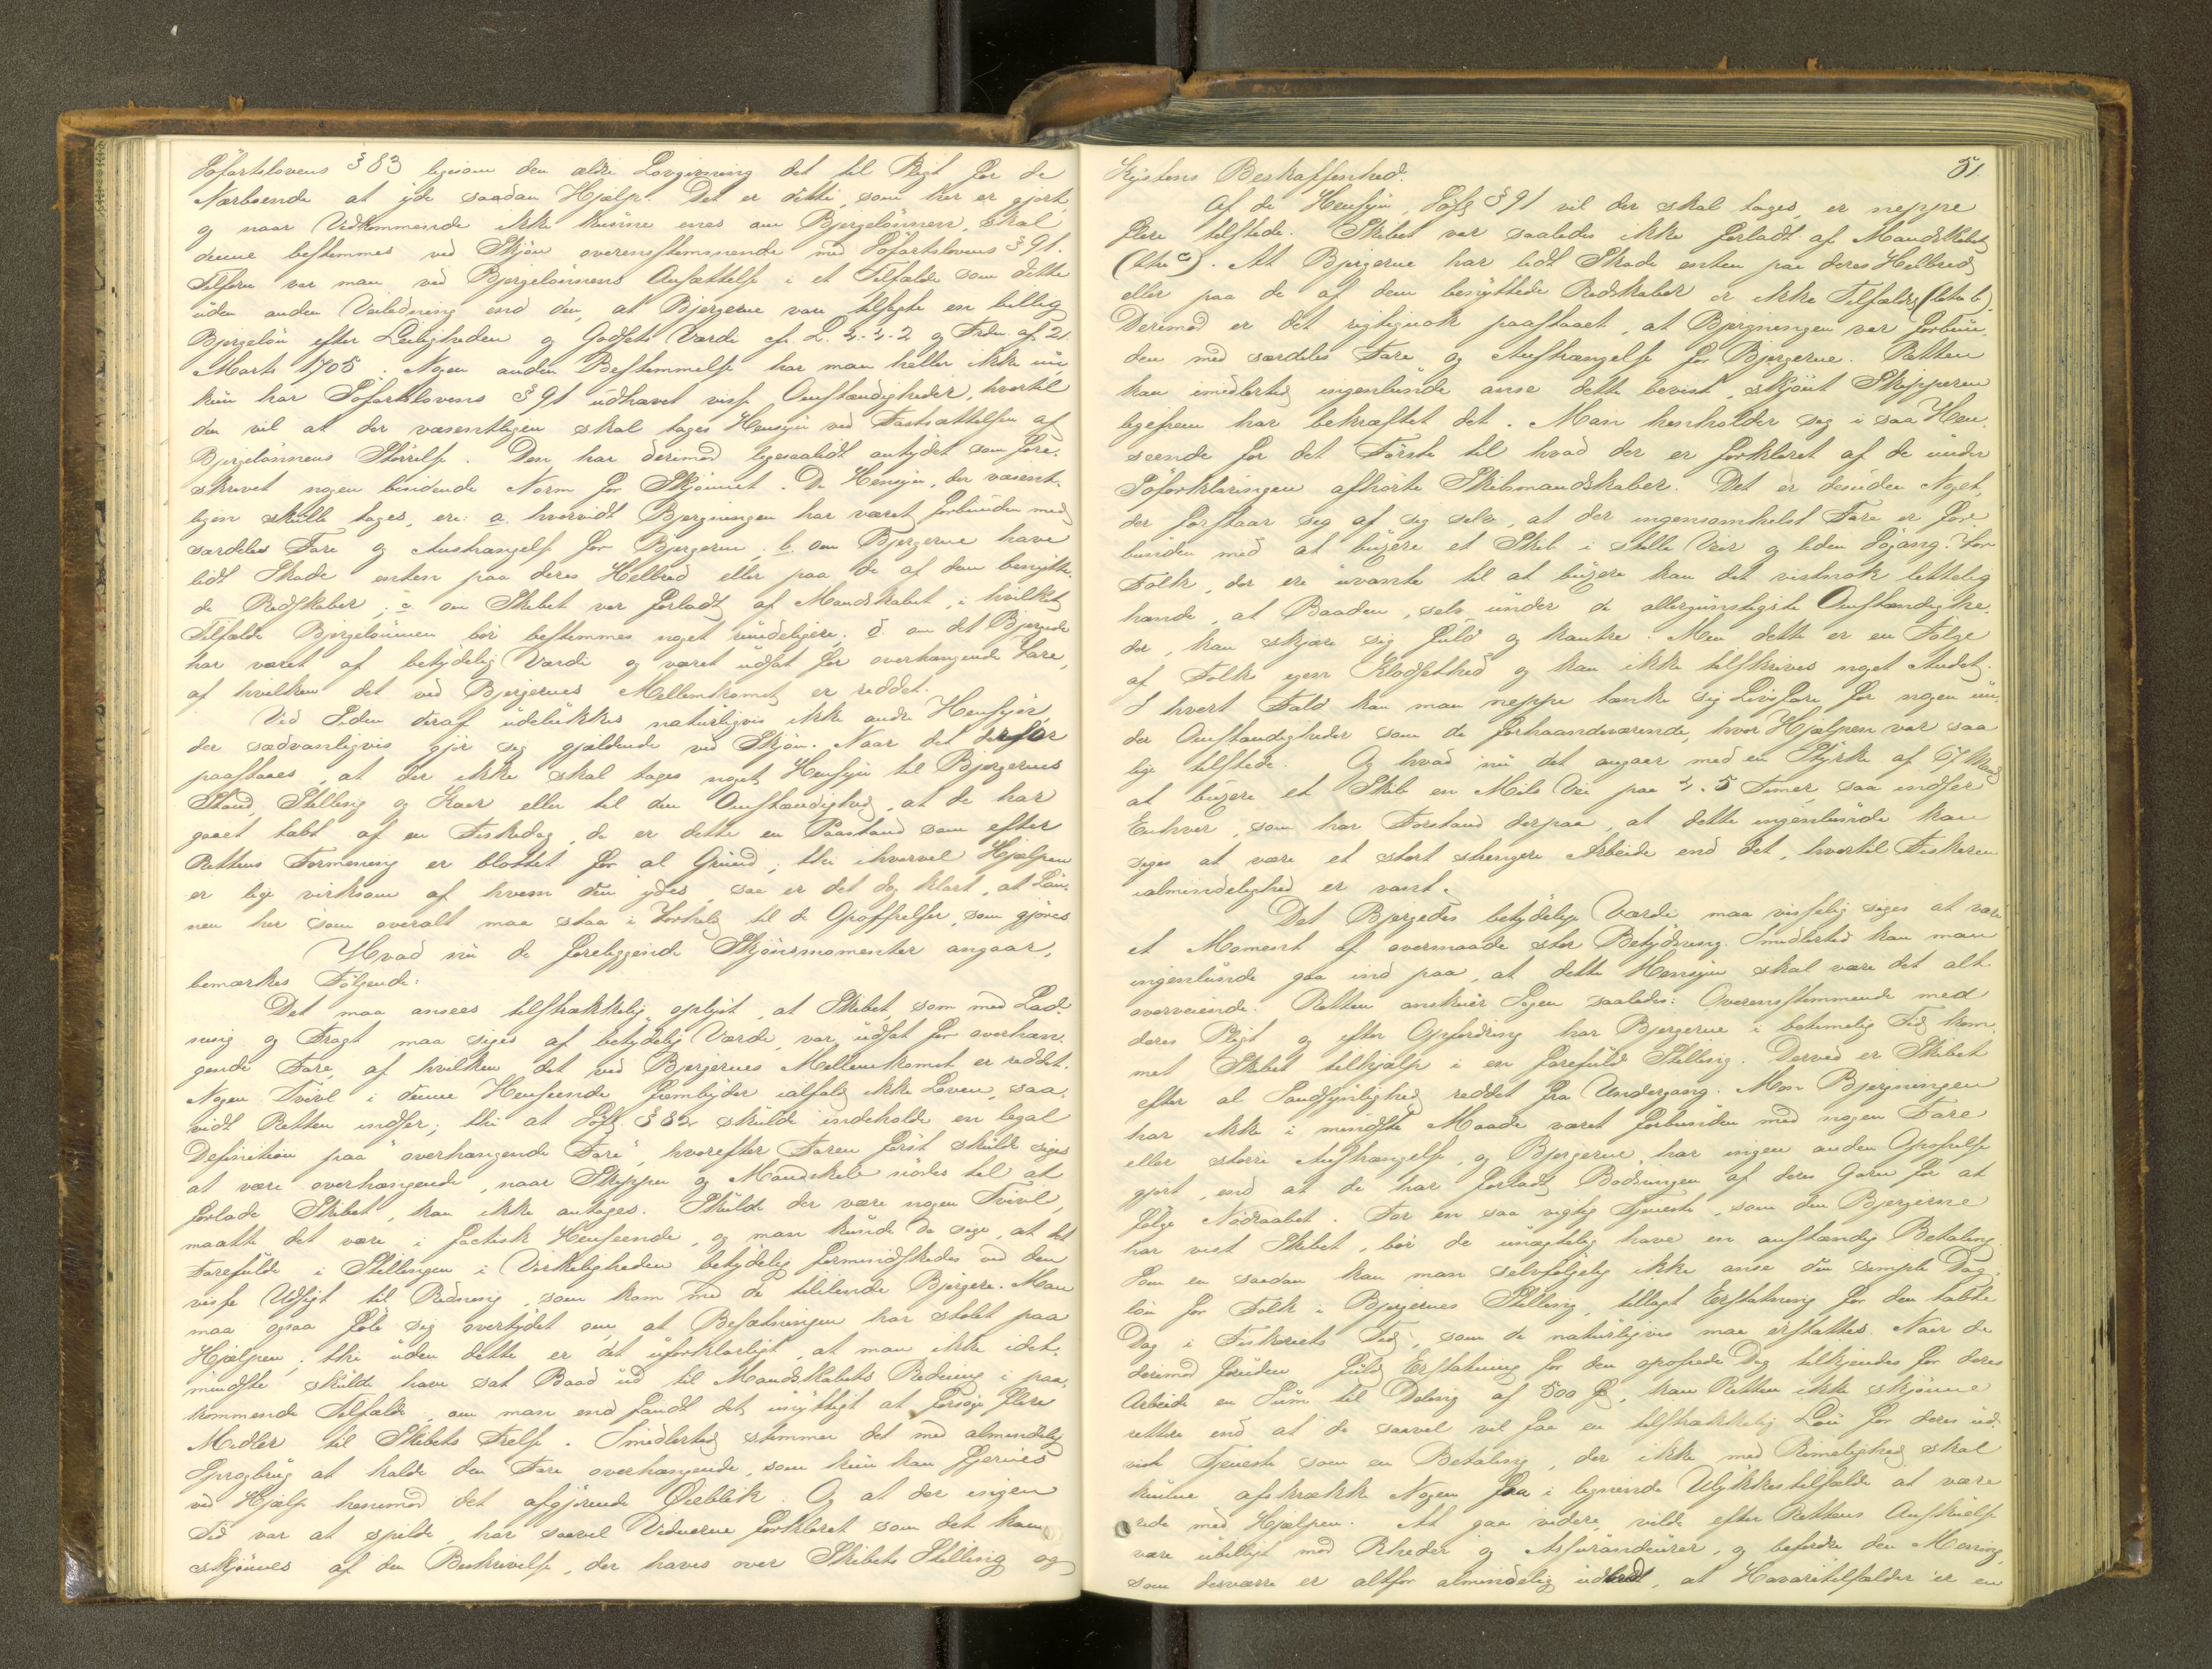 Söfartslovens § 83 ligesom den ældre Lovgivning det til Pligt for de
Nærboende at yde saadan Hjælp. Det er dette, som her er gjort,
og naar Vedkommende ikke kunne enes om Bjergelönnen, skal
denne bestemmes ved Skjön overensstemmende med Söfartslovens § 91.
Tilforn var man ved Bjergelönnens Ansættelse i et Tilfælde som dette
uden anden Veiledning end den, at Bjergerne vare tilsagte en billig
Bjergelön efter Leiligheden og Godsets Værdi cfr. L. 4-4-2 og Frdn. af 21
Marts 1705. Nogen anden Bestemmelse har man heller ikke nu,
kun har Söfartslovens § 91 udhævet visse Omstændigheder, hvortil
den vil at der væsentligen skal tages Hensyn ved Fastsættelsen af
Bjergelönnens Störrelse. Den har derimod ligesaalidt antydet som fore-
skrevet nogen bindende Norm for Skjönnet. De Hensyn, der væsent-
ligen skulle tages, ere: a. hvorvidt Bjergningen har været forbunden med
særdeles Fare og Anstrængelse for Bjergerne, b. om Bjergerne have
lidt Skade enten paa deres Helbred eller paa de af dem benytte-
de Redskaber; c. om Skibet var forladt af Mandskabet, i hvilket
Tilfælde Bjergelönnen bör bestemmes noget rundeligere; d. om det Bjergede
har været af betydelig Værdi og været udsat for overhængende Fare,
af hvilken det ved Bjergernes Mellemkomst er reddet.
Ved Siden deraf udelukkes naturligvis ikke andre Hensyn,
der sædvanligvis gjör sig gjældende ved Skjön. Naar det derfor
paastaaes, at der ikke skal tages noget Hensyn til Bjergernes
Stand, Stilling og Kaar eller til den Omstændighed, at de har
gaaet tabt af en Fiskedag, da er dette en Paastand som efter
Rettens Formening er blottet for al Grund; thi ihvorvel Hjælpen
er lige virksom af hvem den ydes, saa er det dog klart, at Lön-
nen her som overalt maa staa i Forhold til de Opoffrelser, som gjöres
Hvad nu de foreliggende Skjönsmomenter angaar,
bemærkes Fölgende:
Det maa ansees tilstrækkelig oplyst, at Skibet, som med Lad-
ning og Fragt maa siges af betydelig Værdi, var udsat for overhæn-
gende Fare, af hvilken det ved Bjergernes Mellemkomst er reddet.
Nogen Tvivl i denne Henseende frembyder ialfald ikke Loven, saa-
vidt Retten indser; thi at Söfl. § 82 skulde indeholde en legal
Definition paa "overhængende Fare", hvorefter Faren först skulde siges
at være overhængende, naar Skipper og Mandskab nödes til at
forlade Skibet, kan ikke antages. Skulde der være nogen Tvivl,
maatte det være i factisk Henseende, og man kunde da sige, at det
Farefulde i Stillingen i Virkeligheden betydelig formindskedes ved den
visse Udsigt til Redning, som kom med de tililende Bjergere. Man
maa ogsaa föle sig overtydet om, at Besætningen har stolet paa
Hjælpen, thi uden dette er det uforklarligt, at man ikke idet-
mindste skulde have sat Baad ud til Mandskabets Redning i paa-
kommende Tilfælde, om man end fandt det unyttigt at forsöge flere
Midler til Skibets Frelse. Imidlertid stemmer det med almindelig
Sprogbrug at kalde den Fare overhængende, som kun kan fjernes
ved Hjælp henimod det afgjörende Öieblik. Og at der ingen
Tid var at spilde, har saavel Vidnerne forklaret som det kan
skjönnes af den Beskrivelse, der haves over Skibets Stilling og
51.
Kystens Beskaffenhed.
Af de Hensyn, Söfl. § 91 vil der skal tages, er neppe
flere tilstede. Skibet var saaledes ikke forladt af Mandskabet
(litr. c). At Bjergerne har lidt Skade enten paa deres Helbred
eller paa de af dem benyttede Redskaber er ikke Tilfældet (litra b).
Derimod er det rigtignok paastaaet, at Bjergningen var forbun-
den med særdeles Fare og Anstrængelse for Bjergerne. Retten
kan imidlertid ingenlunde anse dette bevist, skjönt Skipperen
ligefrem har bekræftet det. Man henholder sig i saa Hen-
seende for det Förste til hvad der er forklaret af de under
Söforklaringen afhörte Skibsmandskaber. Det er desuden Noget,
der forstaar sig af sig selv, at der ingensomhelst Fare er for-
bunden med at buxere et Skib i stille Veir og liden Sögang. For
Folk, der ere uvante til at buxere kan det vistnok lettelig
hænde, at Baaden, selv under de allergunstigste Omstændighe-
der, kan skjære sig fuld og kantre. Men dette er en Fölge
af Folks egen Klodsethed og kan ikke tilskrives noget Andet.
I hvert Fald kan man neppe tænke sig Livsfare for nogen un-
der Omstændigheder som de forhaandenværende, hvor Hjælpen var saa
lige tilstede. Og hvad nu det angaar med en Styrke af 67 Mand
at buxere et Skib en Mils Vei paa 4-5 Timer, saa indser
Enhver, som har Forstand derpaa, at dette ingenlunde kan
siges at være et stort strengere Arbeide end det, hvortil Fiskeren
ialmindelighed er vant.
Det Bjergedes betydelige Værdi maa visselig siges at være
et Moment af overmaade stor Betydning. Imidlertid kan man
ingenlunde gaa ind paa, at dette Hensyn skal være det alt
overveiende. Retten anskuer Sagen saaledes: Overensstemmende med
deres Pligt og efter Opfordring har Bjergerne i betimelig Tid kom-
met Skibet tilhjælp i en farefuld Stilling. Derved er Skibet
efter al Sandsynlighed reddet fra Undergang. Men Bjergningen
har ikke i mindste Maade været forbunden med nogen Fare
eller större Anstrængelse, og Bjergerne har ingen anden Opofrelse
gjort, end at de har forladt Bödningen af deres Garn for at
fölge Nödraabet. For en saa vigtig Tjeneste, som den Bjergerne
har vist Skibet, bör de unægtelig have en anstændig Betaling.
Som en saadan kan man selvfölgelig ikke anse den simple Dag-
lön for Folk i Bjergernes Stilling, tillagt Erstatning for den tabte
Dag i Fiskeriets Tid, som de naturligvis maa erstattes. Naar de
derimod foruden fuld Erstatning for den opofrede Dag tilkjendes for deres
Arbeide en Sum til Deling af 500 , kan Retten ikke skjönne
rettere end at de saavel vil faa en tilstrækkelig Lön for deres ud-
viste Tjeneste som en Betaling, der ikke med Rimelighed skal
kunne afskrække Nogen fra i lignende Ulykkestilfælde at være
rede med Hjælpen. At gaa videre, vilde efter Rettens Anskuelse
være ubilligt mod Rheder og Assurandeurer, og befordre den Mening,
som desværre er altfor almindelig udbredt, at Havaritilfælder er en